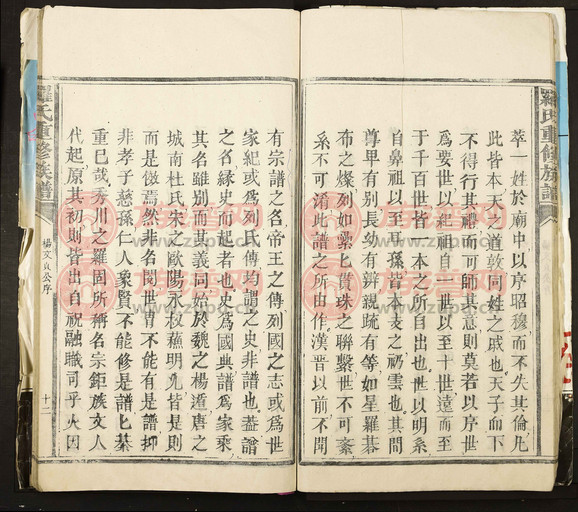 羅氏重修族譜
萃一姓於廟中以序昭穆而不失其倫凡
此皆本天之道敦同姓之戚也天子而下
不得行其禮而可師其意則莫若以序世
為要世以紀祖自一世以至十世遠而至
于千百世皆一本之所自出也世以明系
自鼻祖以至耳孫皆本支之礽雲也其間
尊卑有别長幼有辨親疏有等如星羅碁
布之燦列如纍七貫珠之聯繫世不可紊
系不可淆此譜之所由作漢晋以前不聞
有宗譜之名帝王之傳列國之志或為世
家紀或為列氏傳均謂之史非譜也蓋譜
之名縁史而起者也史為國典譜為家乘
其名雖别而其義同始於魏之楊遁唐之
城南杜氏宋之歐陽永叔蘓明允皆是則
而是傚焉然非名閥世胄不能有是譜抑
非孝子慈孫仁人象賢不能修是譜匕綦
重巳哉秀川之羅固所稱名宗鉅族文人
代起原其初則皆出自祝融職司乎火因
羅氏重修族譜
楊文貞公序
十二